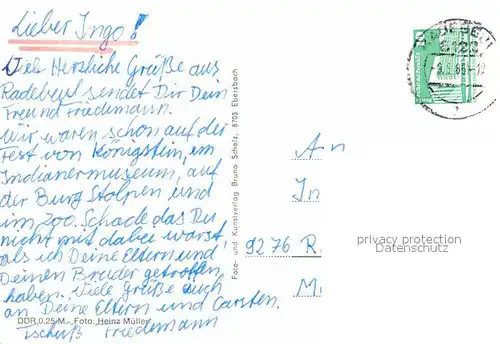 Lieber Ingo!
Viele Herzliche Grüße aus
Radebeul sendet Dir Dein
Freund Friedemann.
Wir waren schon auf der
Fest von Königstein, im
Indianermuseum, auf
der Burg Stolpen und
im Zoo. Schade das Du
nicht mit dabei warst,
als ich Deine Eltern und
Deinen Bruder getroffen
haben. Viele Grüße auch
an Deine Eltern und Carsten.
Tschüß Friedemann
DDR 0,25 M Foto: Heinz Müller
Foto- und Kunstverlag Bruno Scholz, 8705 Ebersbach
An
In
9276 R.
M.
privacy protection
Datenschutz